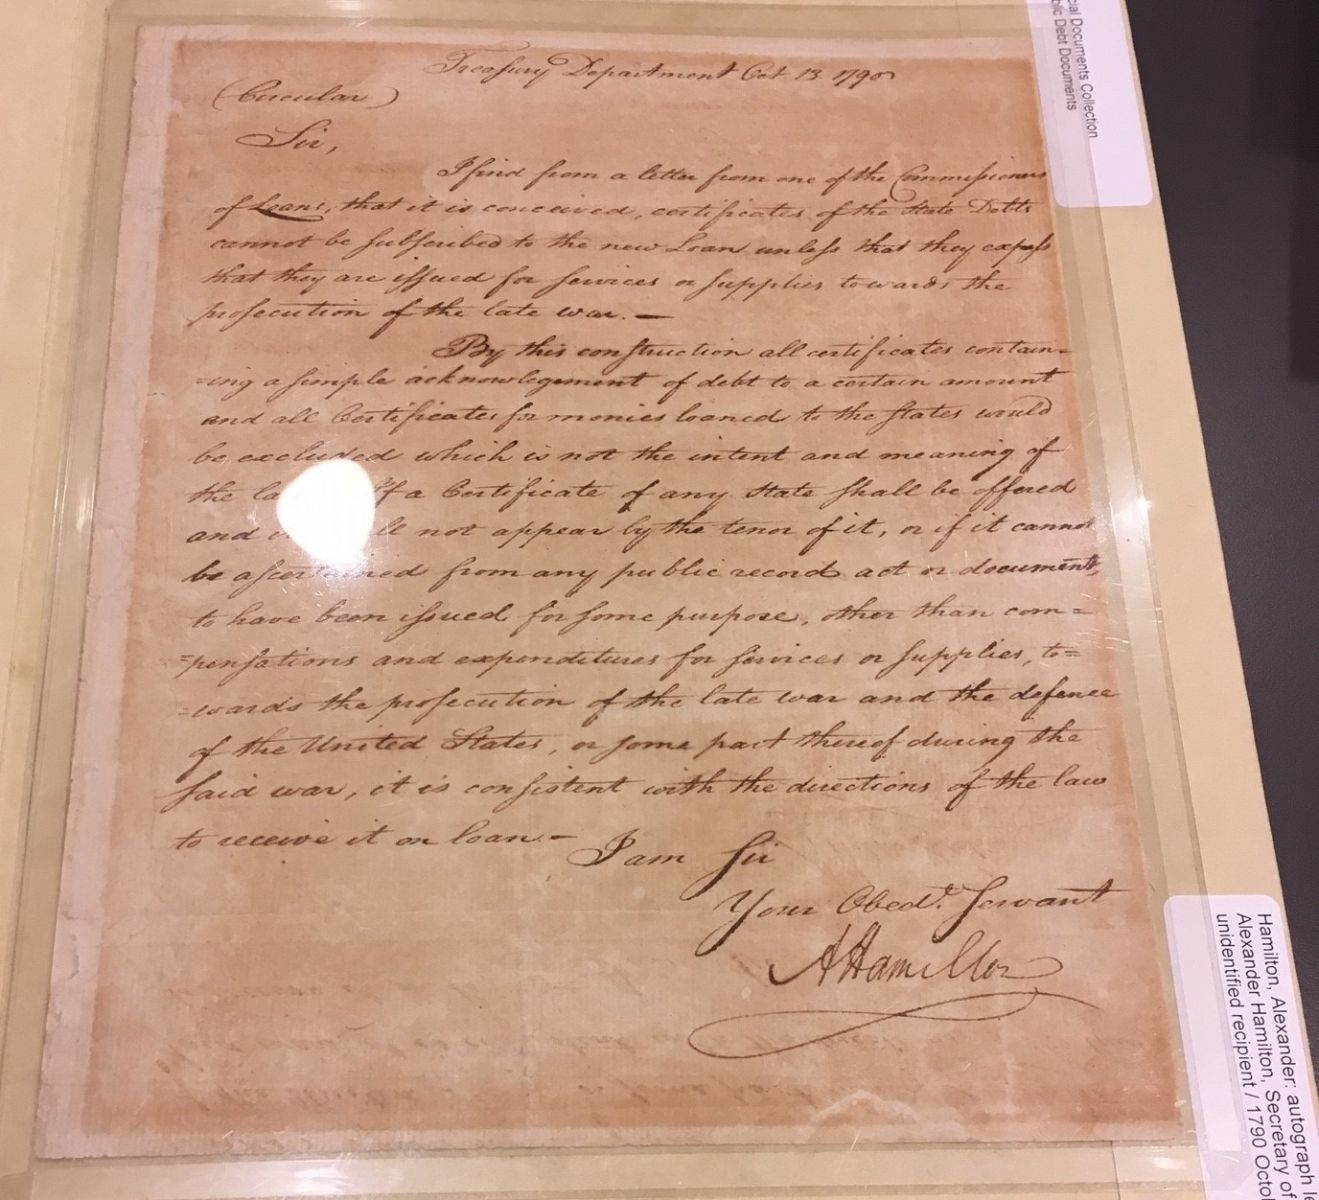 Treasury Department Oct. 13. 1790
(Circular)
Sir,
I find from a letter from one of the Commissioners
of Loans, that it is conceived, certificates of the State Debts
cannot be subscribed to the new Loan unless that they express
that they are issued for services or supplies towards the
prosecution of the late war. —
By this construction all certificates contain=
=ing a simple acknowlegement of debt to a certain amount
and all Certificates for monies loaned to the states would
be excluded which is not the intent and meaning of
the If a Certificate of any State shall be offered
and not appear by the tenor of it, or if it cannot
be ascertained from any public record act or document,
to have been issued for some purpose, other than com=
=pensations and expenditures for services or supplies, to=
=wards the prosecution of the late war and the defence
of the United States, or some part thereof during the
said war, it is consistent with the directions of the law
to receive it on loan — I am Sir
Your Obedt. Servant
A Hamilton
cial Documents Collection
blic Debt Documents
Hamilton, Alexander: autograph le
Alexander Hamilton, Secretary of
unidentified recipient / 1790 Octo